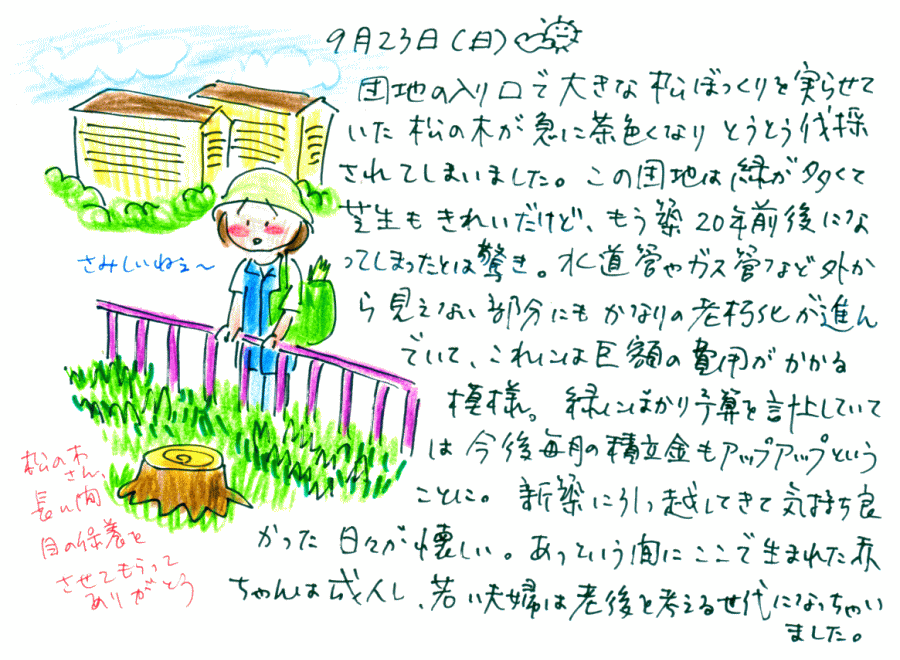 9月23日(日)
団地の入り口で大きな松ぼっくりを実らせて
いた松の木が急に茶色くなりとうとう伐採
されてしまいました。この団地は緑が多くて
芝生もきれいだけど、もう築20年前後にな
ってしまったとは驚き。水道管やガス管など外か
ら見えない部分にもかなりの老朽化が進ん
でいて、これには巨額の費用がかかる
模様。緑にばかり予算を計上していて
は今後毎月の積立金もアップアップという
ことに。新築に引っ越してきて気持ち良
かった日々が懐しい。あっという間にここで生まれた赤
ちゃんは成人し、若い夫婦は老後を考える世代になっちゃい
ました。
さみしいねぇ〜
松の木
さん、
長い間
目の保養を
させてもらって
ありがとう